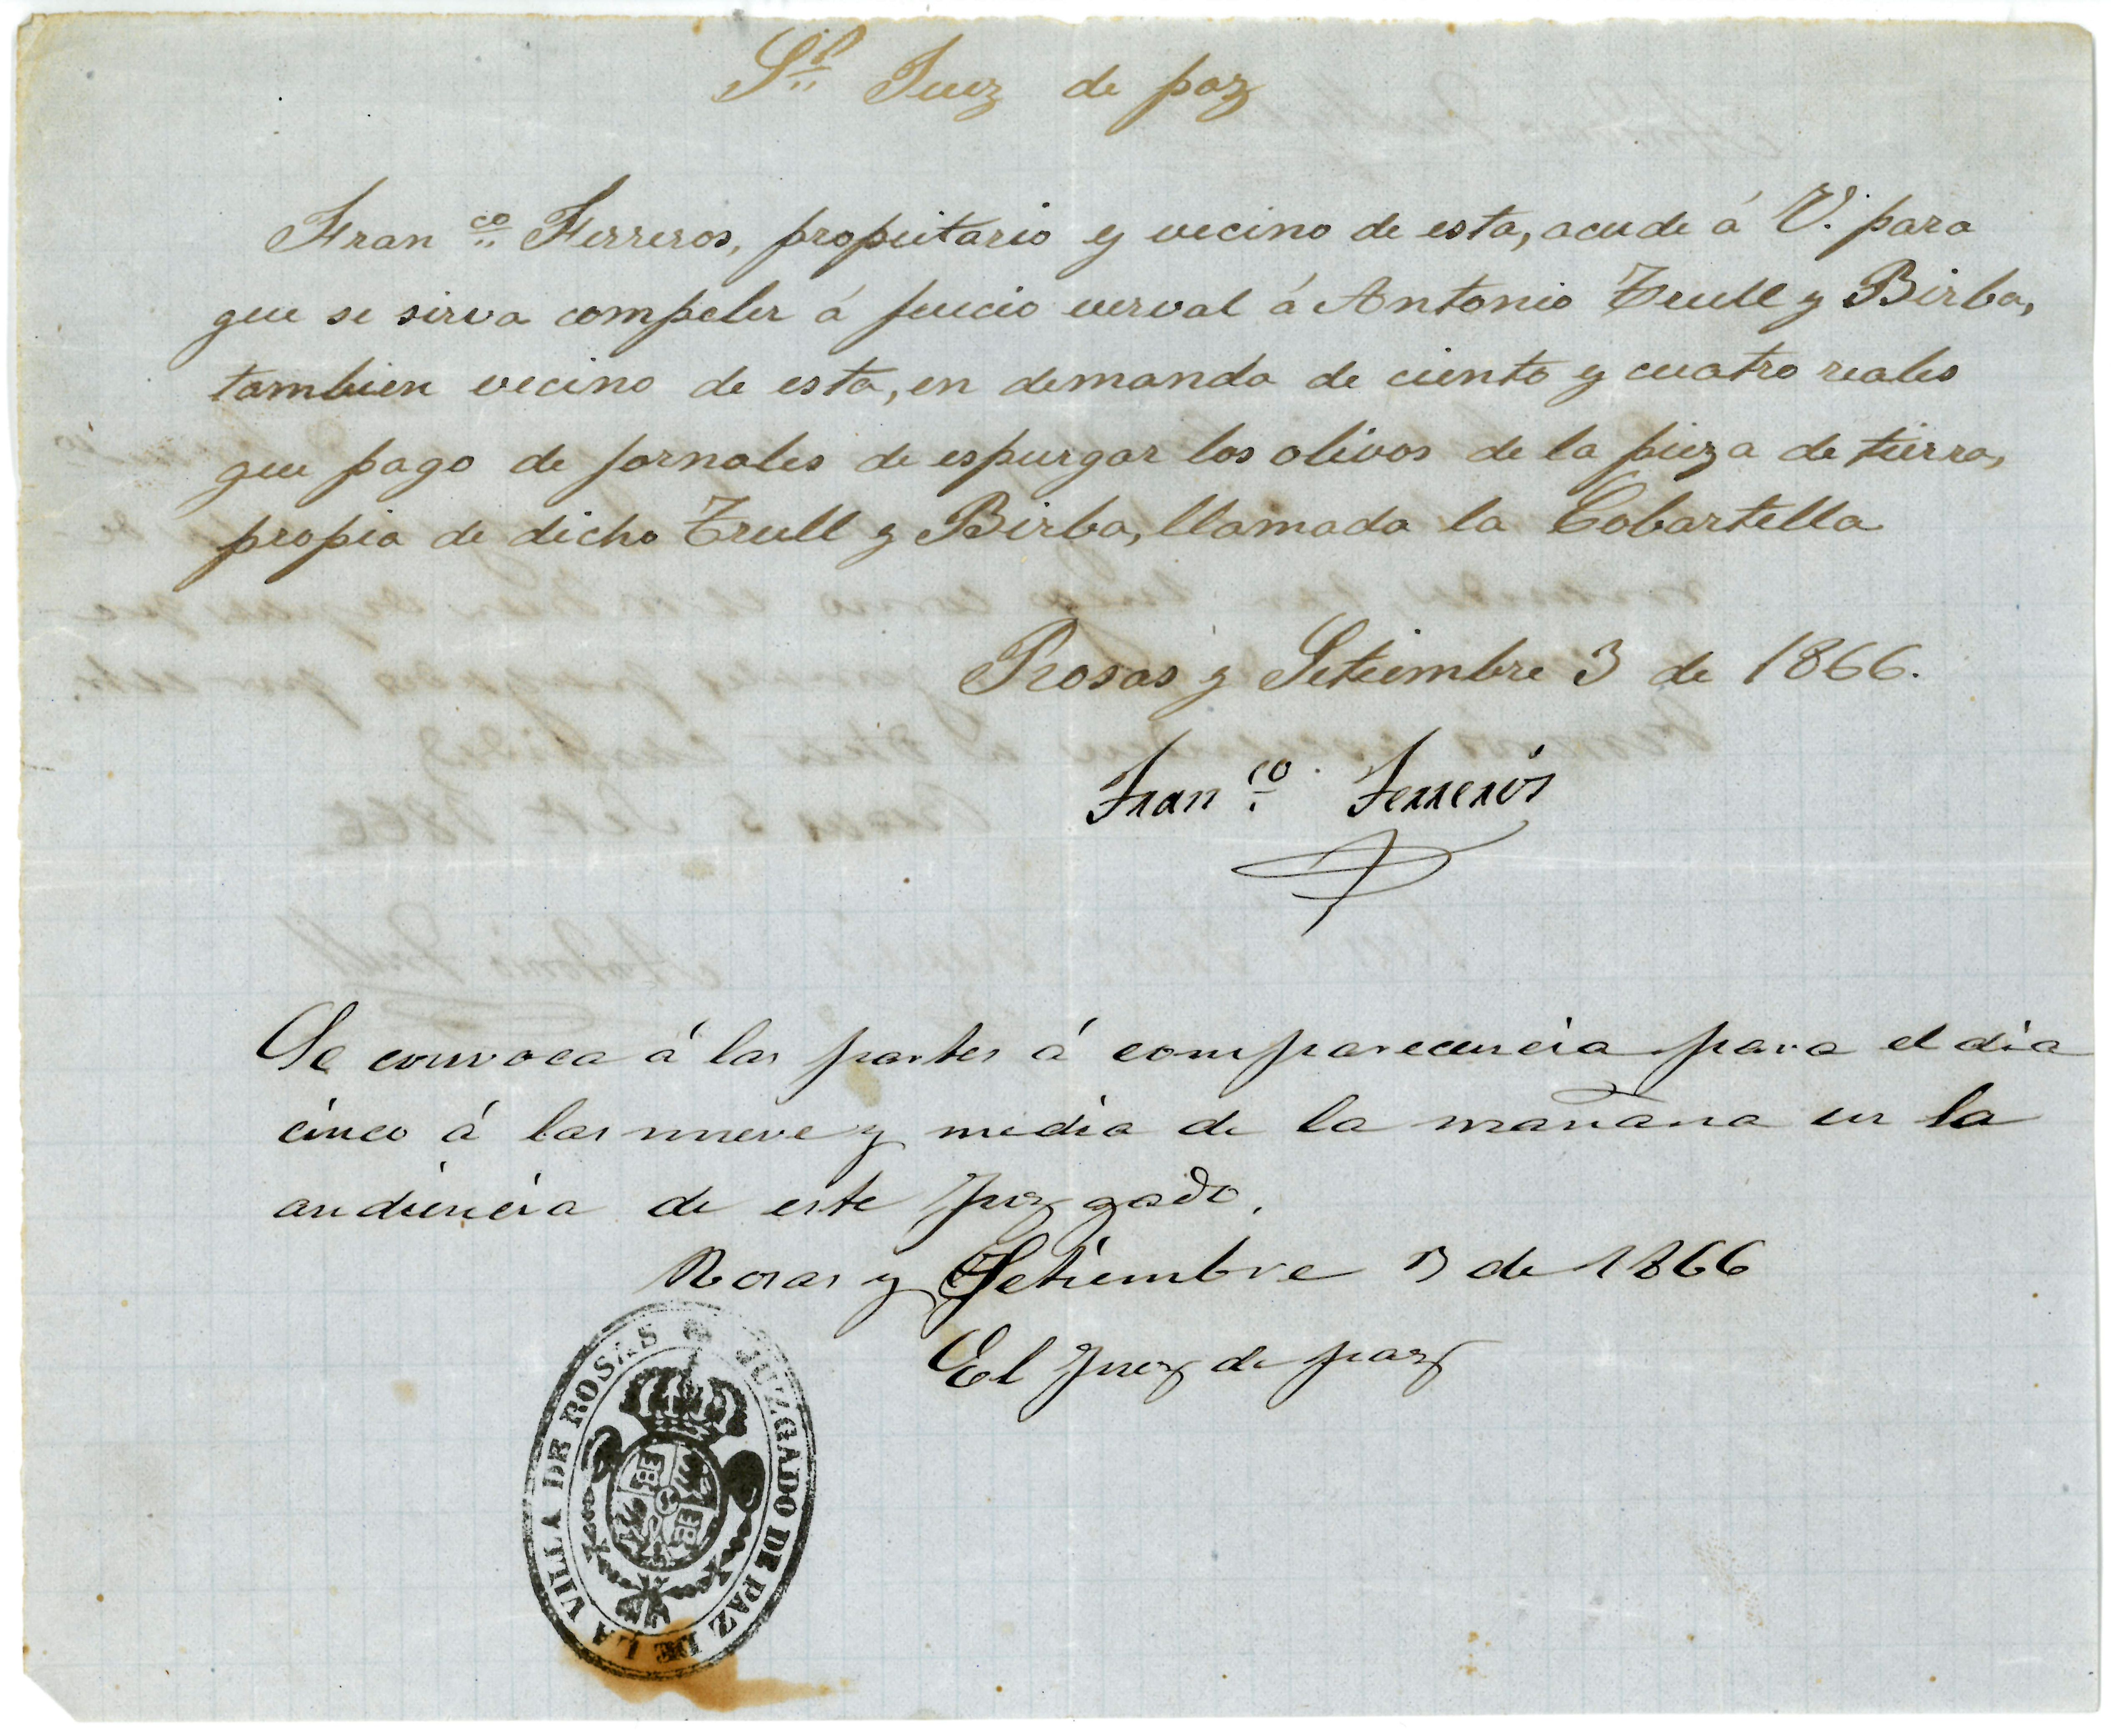 Sr. Juez de paz
Fran co. Ferreros, propietario y vecino de esta, acude á V. para
que se sirva compeler á juicio verval á Antonio Trull y Birba,
tambien vecino de esta, en demanda de ciento y cuatro reales
que pago de jornales de espurgar los olivos de la pieza de tierra,
propia de dicho Trull y Birba, llamada la Cobartella
Rosas y Setiembre 3 de 1866.
Fran co. Ferrerós
Se convoca á las partes á comparecencia para el dia
cinco á las nueve y media de la mañana en la
audiencia de este Juzgado.
Rosas y Setiembre 3 de 1866
El Juez de paz
JUZGADO DE PAZ DE LA VILLA DE ROSAS